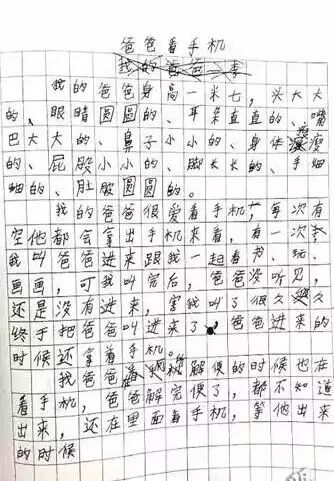 爸爸看手机
我的爸爸一李
我的爸爸身高一米七，头大大
的、眼睛圆圆的、耳朵直直的、嘴
巴大大的、鼻子小小的、身体瘦瘦
的、屁股小小的、脚长长的、手细
细的、肚股圆圆的。
我的爸爸很爱看手机，每次有
空他都会拿出手机来看，有一次
我叫爸爸进来跟我一起看书、玩、
画画，可我叫完后，爸爸没听见，
还是没有进来，害我叫了很久
终于把爸爸叫进来了，爸爸进来的
时候还拿着手机。
我爸爸解便的时候也在
看手机，爸爸解完便了，都不知道
出来，还在里面看手机，等他出来
的时候